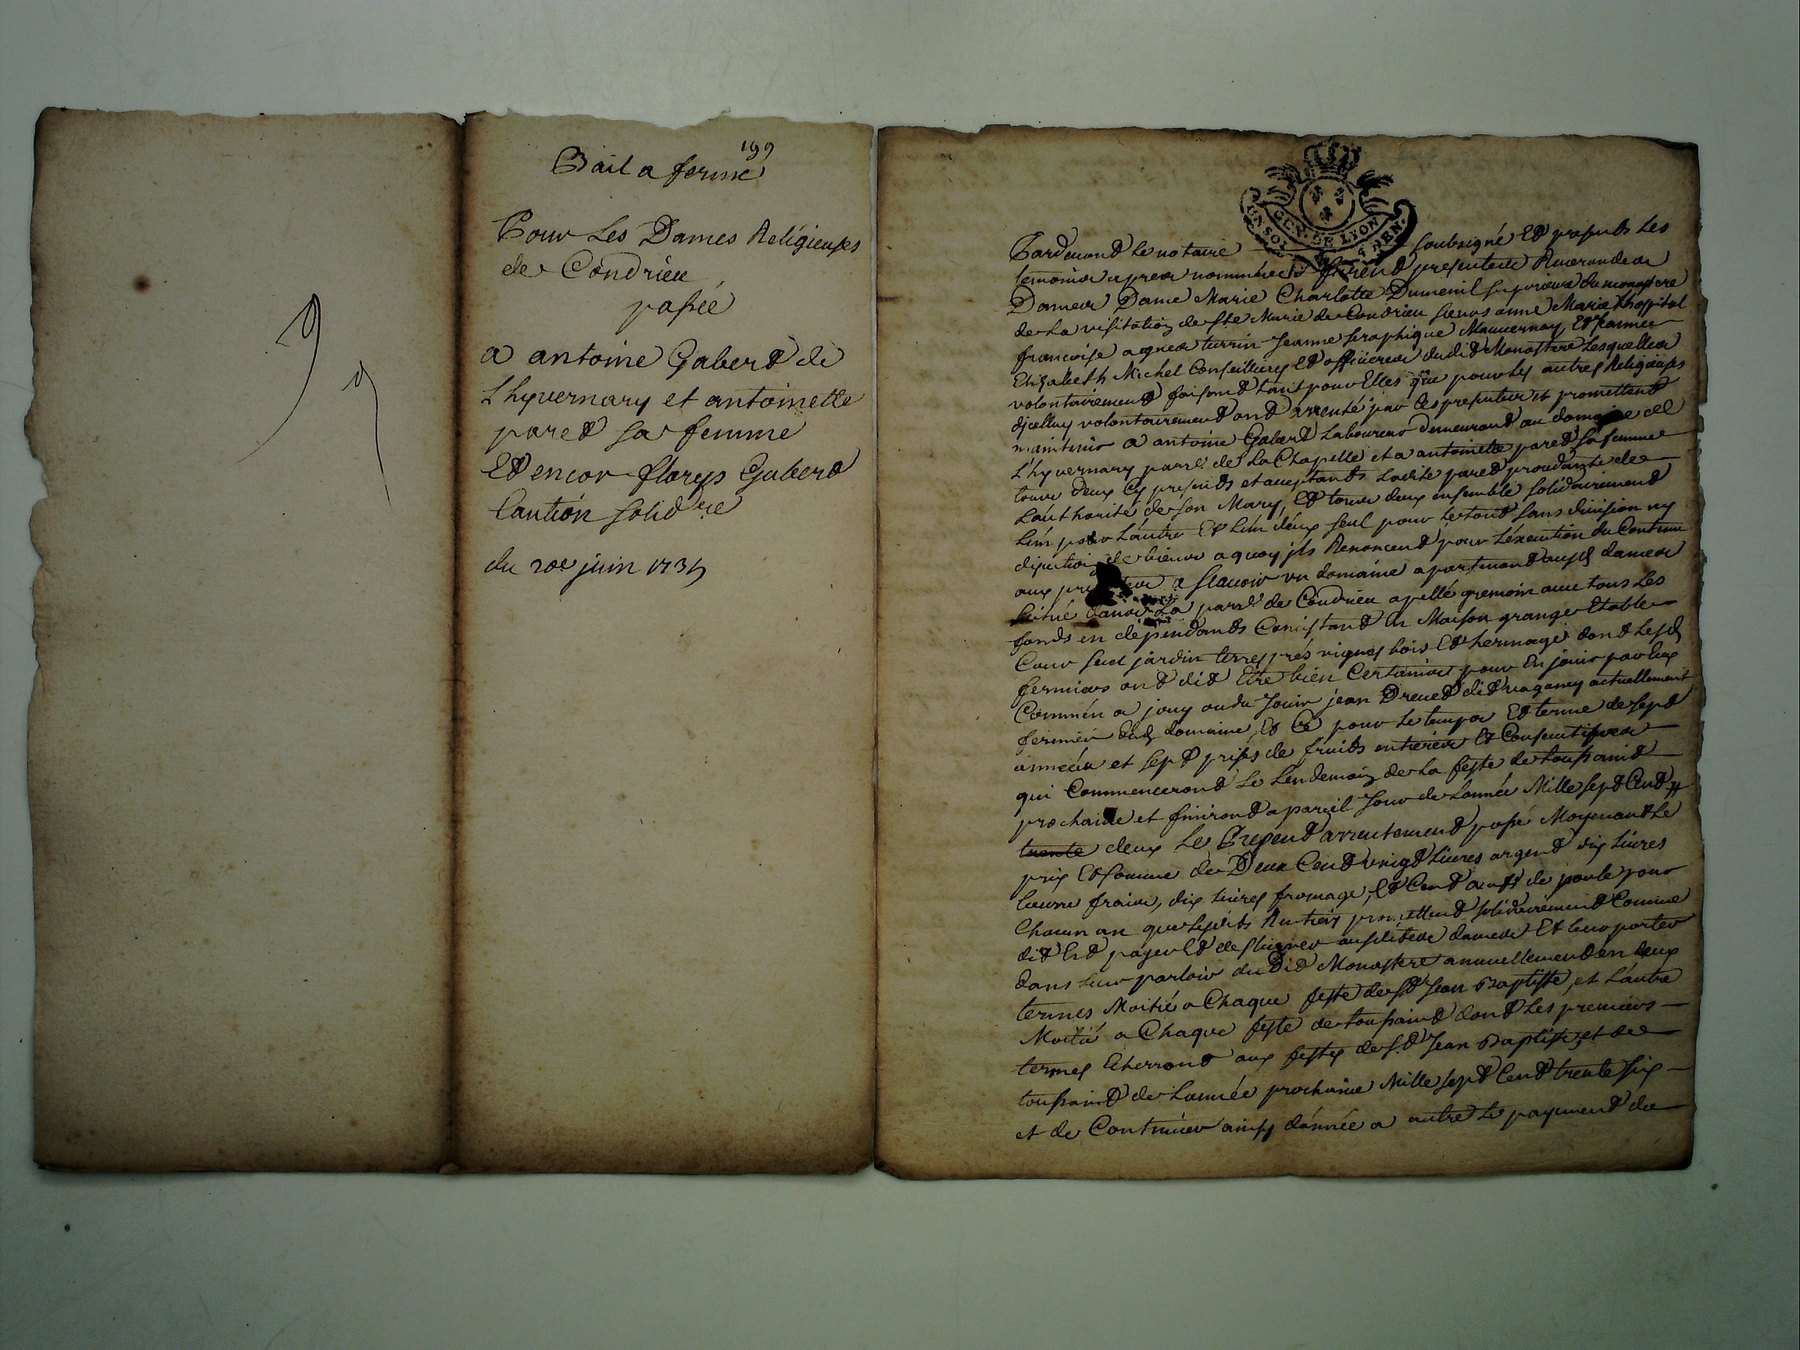 199
Bail a ferme
Pour Les Dames Religieuses
de Condrieu
passée
a antoine Gaberd de
Lhyvernary et antoinette
pared sa femme
Et encor florys Gaberd
Caution solid.re
du 20e juin 1735
95
GEN. DE LYON
UN SOL 4 DEN.
Pardevand Le notaire soubsigné Et presents Les
temoins apres nommés furend presentes Reverandes
Dames Dame Marie Charlotte Dumenil superieure du monastere
de La visitation de Ste Marie de Condrieu sieurs anne Marie Lhospital
francoise agnes turrin Jeanne seraphique Mauvernay, Et
Elizabeth Michel Conseilleres Et officieres dudit Monastere Lesquelles
volontairement faisand tant pour Elles que pour Les autres Religieuses
dicelluy volontairement ond arrenté par Ces presentes et promettend
maintenir a antoine Gaberd Laboureur demeurand au domaine de
Lhyvernary parr.e de La Chapelle et a antoinette pared sa femme
tous deux Cy presents et acceptants Ladite pared procedante de
Lauthorité de son Mary, Et tous deux ensemble solidairement
Lun pour Lautre Et Lun deux seul pour Le tout sans division ny
de biens a quoy ils Renoncend pour Lexecution du Contenu
aux a scavoir un domaine apartenand auxd dames
situé dans La parr.e de Condrieu apellé gremoin avec tous Les
fonds en dependants Consistand En Maison grange Etable
Cour sud jardin terres prés vignes bois Et hermages dond Lesd
fermiers ond did Etre bien Certiorés pour En jouir par Eux
Comme a jouy ou du Jouir jean Drevet did maganey actuellement
fermier dud domaine, Et Ce pour Le temps Et terme de sept
années et sept prises de fruits entieres Et Consecutives
qui Commencerond Le Lendemain de La feste de toussaint
prochaine et finirond a pareil Jour de Lannée Mille sept Cend
trente deux Le Present arrentement passé Moyenand Le
prix Et somme de Deux Cend vingt Livres argend dix Livres
beurre frais, dix Livres fromage, Et Cend œufs de poule pour
Chacun an que Lesdits promettend solidairement Comme
did Est payer Et auxdites dames Et Leur porter
dans Leur parloir dudid Monastere annuellement en deux
termes Moitié a Chaque feste de St Jean Baptiste, et Lautre
Moitié a Chaque feste de toussaind dond Les premiers
termes Echerrond aux festes de St Jean Baptiste et de
toussaind de Lannée prochaine Mille sept Cend trente six
et de Continuer ainsy dannée a autre Le payement de